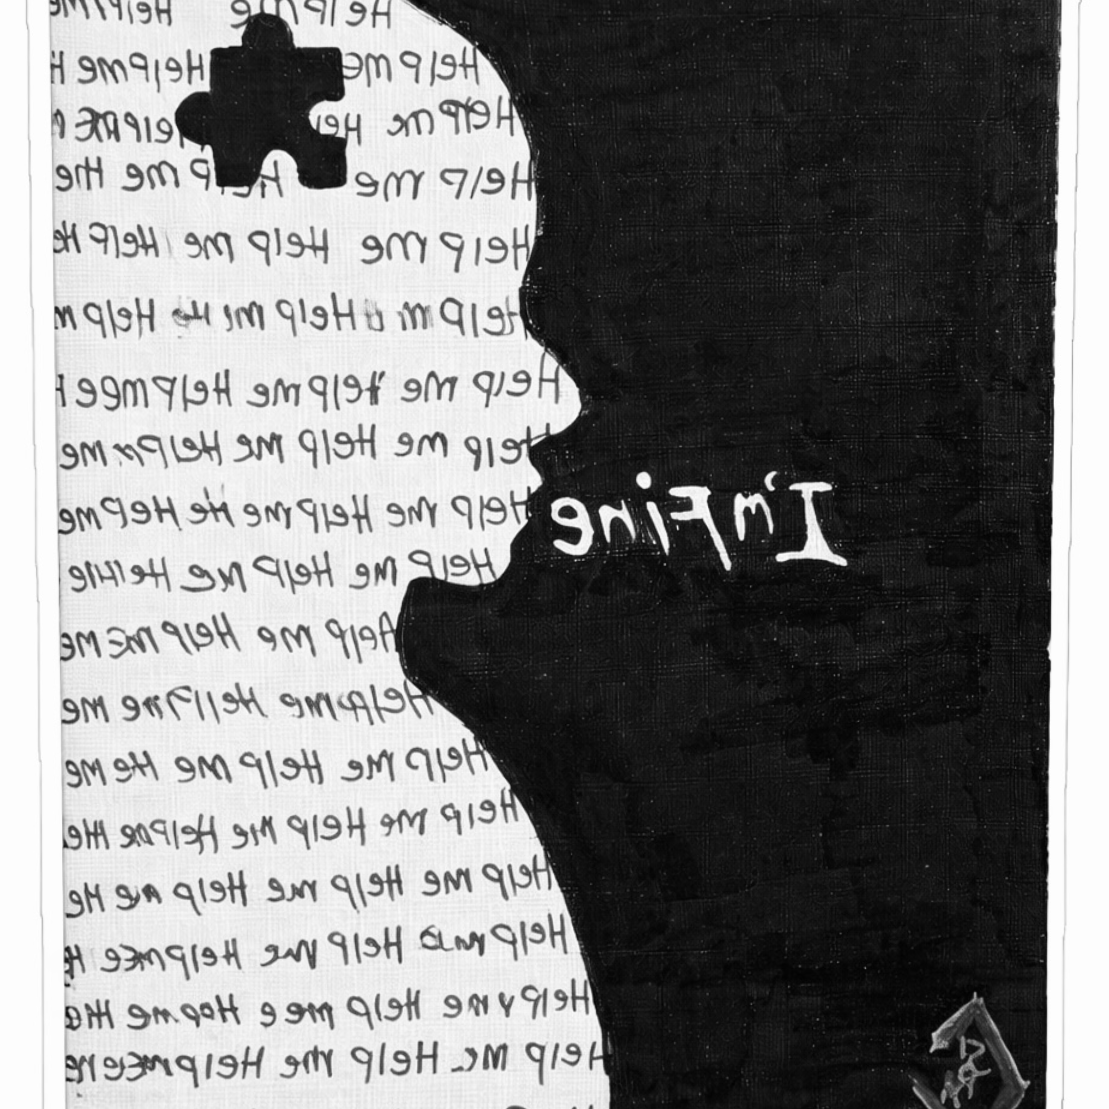 Help me Help me
Help me Help me H
Help me Hel Help
Help me Help me He
Help me Help me Help He
Help m Help Help m
Help me Help me Help mee H
Help me Help me Help me
Help me Help me He Hep me
I'm Fine
Help me Help me He
Help me Help me me
Help me Help me
Help me Help me He me
Help me Help me Help He
Help me Help me Help me He
Help Help me Help mee H
Help me Help mee Hep me
Help me Help me Help me